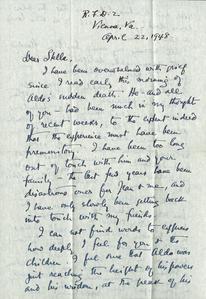 R.F.D. 2
Vienna, Va.
April 22, 1948
Dear Stella:
I have been overwhelmed with grief
since I read early this morning of
Aldo's sudden death. He and all
of you had been much in my thought
of recent weeks, to the extent indeed
that the experience must have been
premonitory. I have been too long
out of touch with him and your
family, the last few years have been
disastrous ones for Jean & me, and
I have only slowly been getting back
into touch with my friends.
I can not find words to express
how deeply I feel for you & the
children. I feel sure that Aldo was
just reaching the height of his powers
and his wisdom, at the peak of his